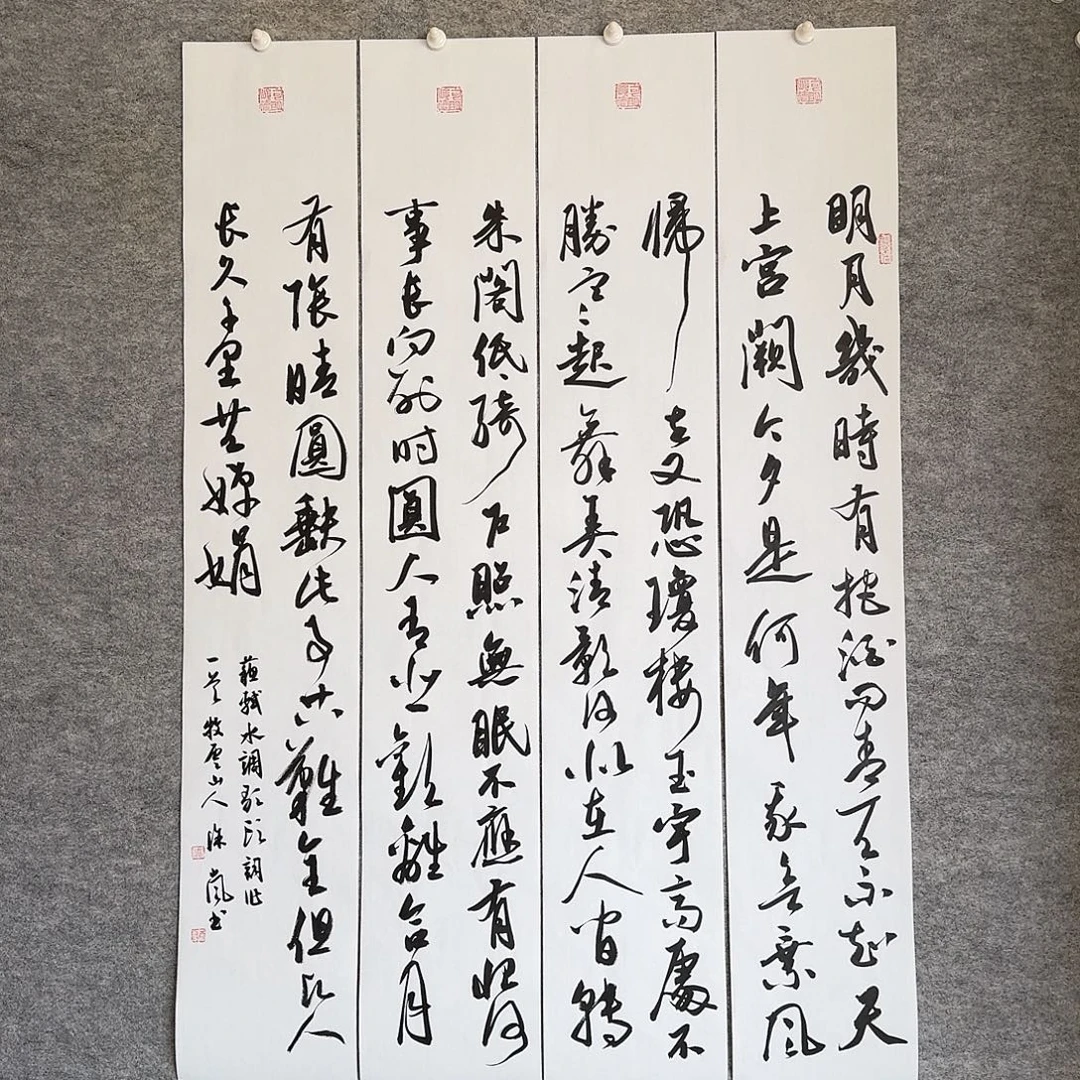 明月幾時有把酒问青天不知天
上宮闕今夕是何年我欲乘風
歸去又恐瓊樓玉宇高處不
勝寒起舞弄清影何似在人间轉
朱閣低綺户照無眠不應有恨何
事长向别时圓人有悲歡離合月
有陰晴圓缺此事古難全但願人
长久千里共嬋娟
蘇軾水調歌頭詞
牧雲山人